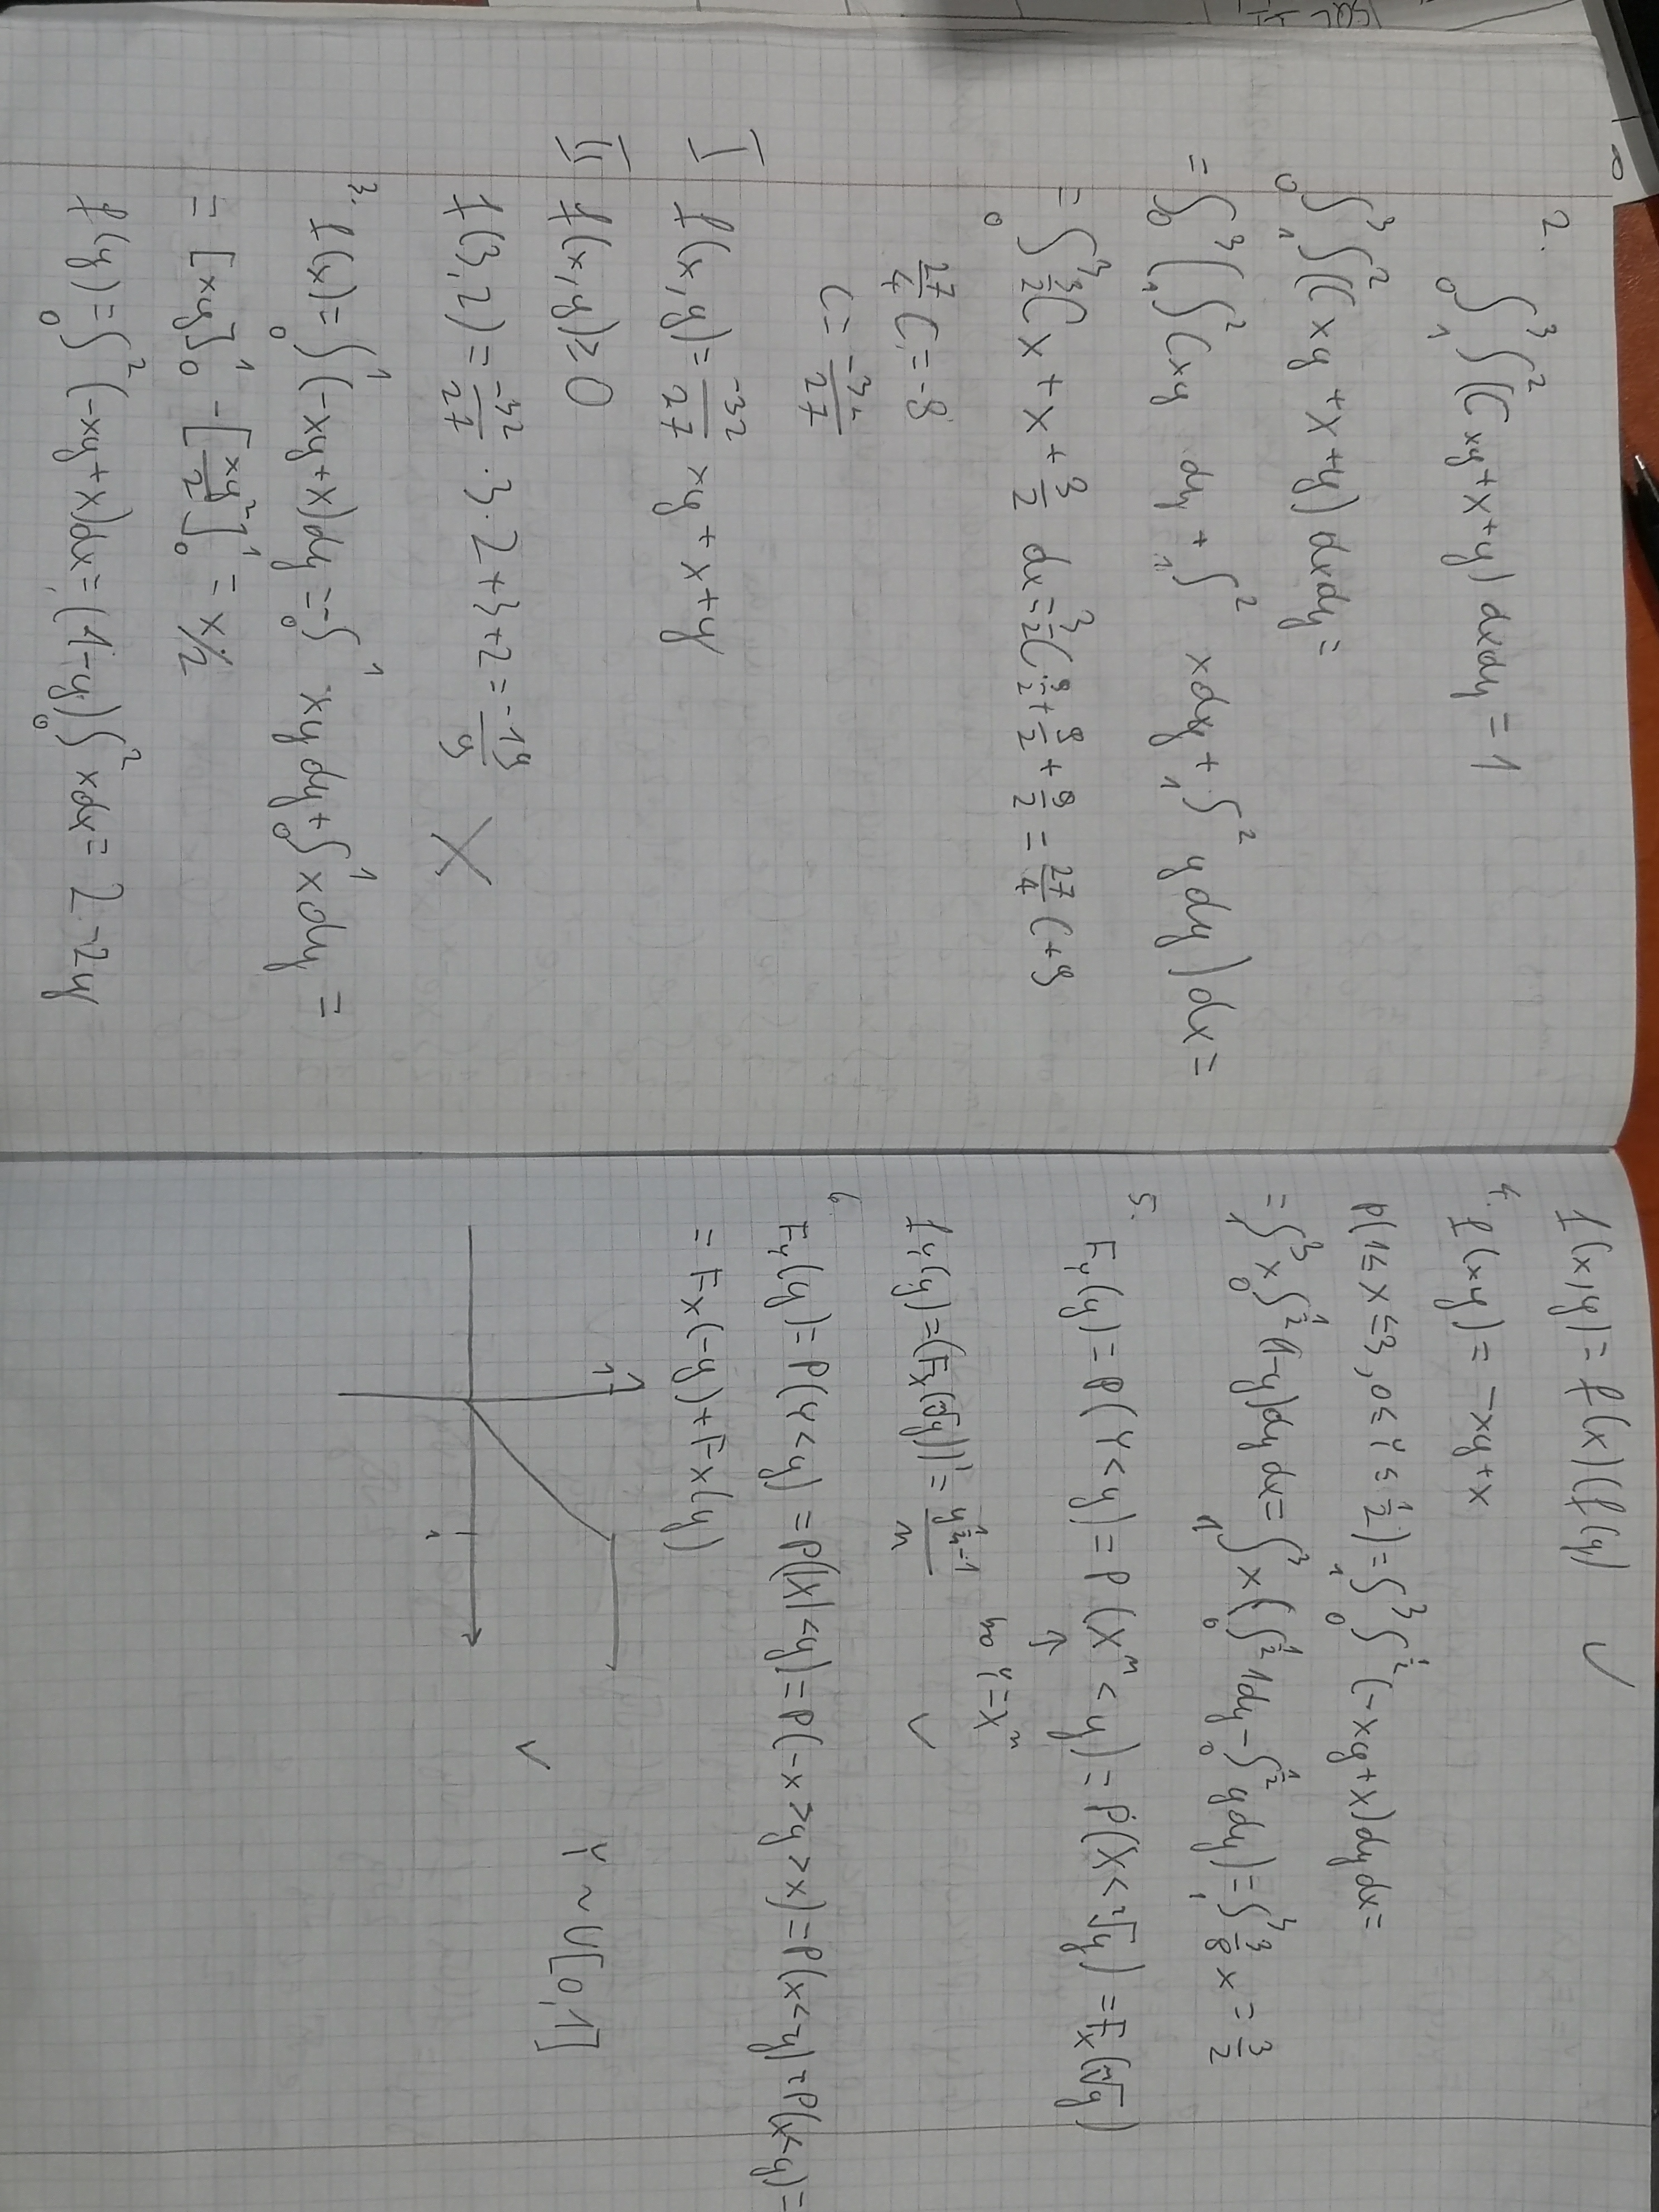 2.
∫₀³ ∫₁² (Cxy+x+y) dxdy = 1
∫₀³ ∫₁² (Cxy+x+y) dxdy =
= ∫₀³ (₁∫² Cxy dy + ₁∫² xdy + ₁∫² ydy) dx =
= ∫₀³ 3/2 Cx + x + 3/2 dx = 3/2 C · 9/2 + 9/2 + 9/2 = 27/4 C + 9
27/4 C = -8
C = -32/27
I f(x,y) = -32/27 xy + x + y
II f(x,y) ≥ 0
f(3,2) = -32/27 · 3 · 2 + 3 + 2 = -19/9 X
3. f(x) = ∫₀¹ (-xy+x)dy = -∫₀¹ xy dy + ∫₀¹ x dy =
= [xy]₀¹ - [xy²/2]₀¹ = x/2
f(y) = ∫₀² (-xy+x)dx = (1-y) ∫₀² xdx = 2-2y
f(x,y) = f(x)(f(y) ✓
4. f(xy) = -xy+x
P(1≤X≤3, 0≤Y≤1/2) = ∫₁³ ∫₀^½ (-xy+x)dy dx =
= ∫₁³ x ∫₀^½ (1-y)dy dx = ∫₁³ x (∫₀^½ 1dy - ∫₀^½ ydy) = ∫₁³ 3/8 x = 3/2
5.
F_Y(y) = P(Y<y) = P(Xⁿ<y) = P(X<ⁿ√y) = F_X(ⁿ√y)
↑
bo Y=Xⁿ
f_Y(y) = (F_X(ⁿ√y))' = y^(1/n-1)/n ✓
6.
F_Y(y) = P(Y<y) = P(|X|<y) = P(-x>y>x) = P(x<-y)+P(x<y) =
= F_X(-y) + F_X(y)
1
Y ~ U[0,1]
✓
1